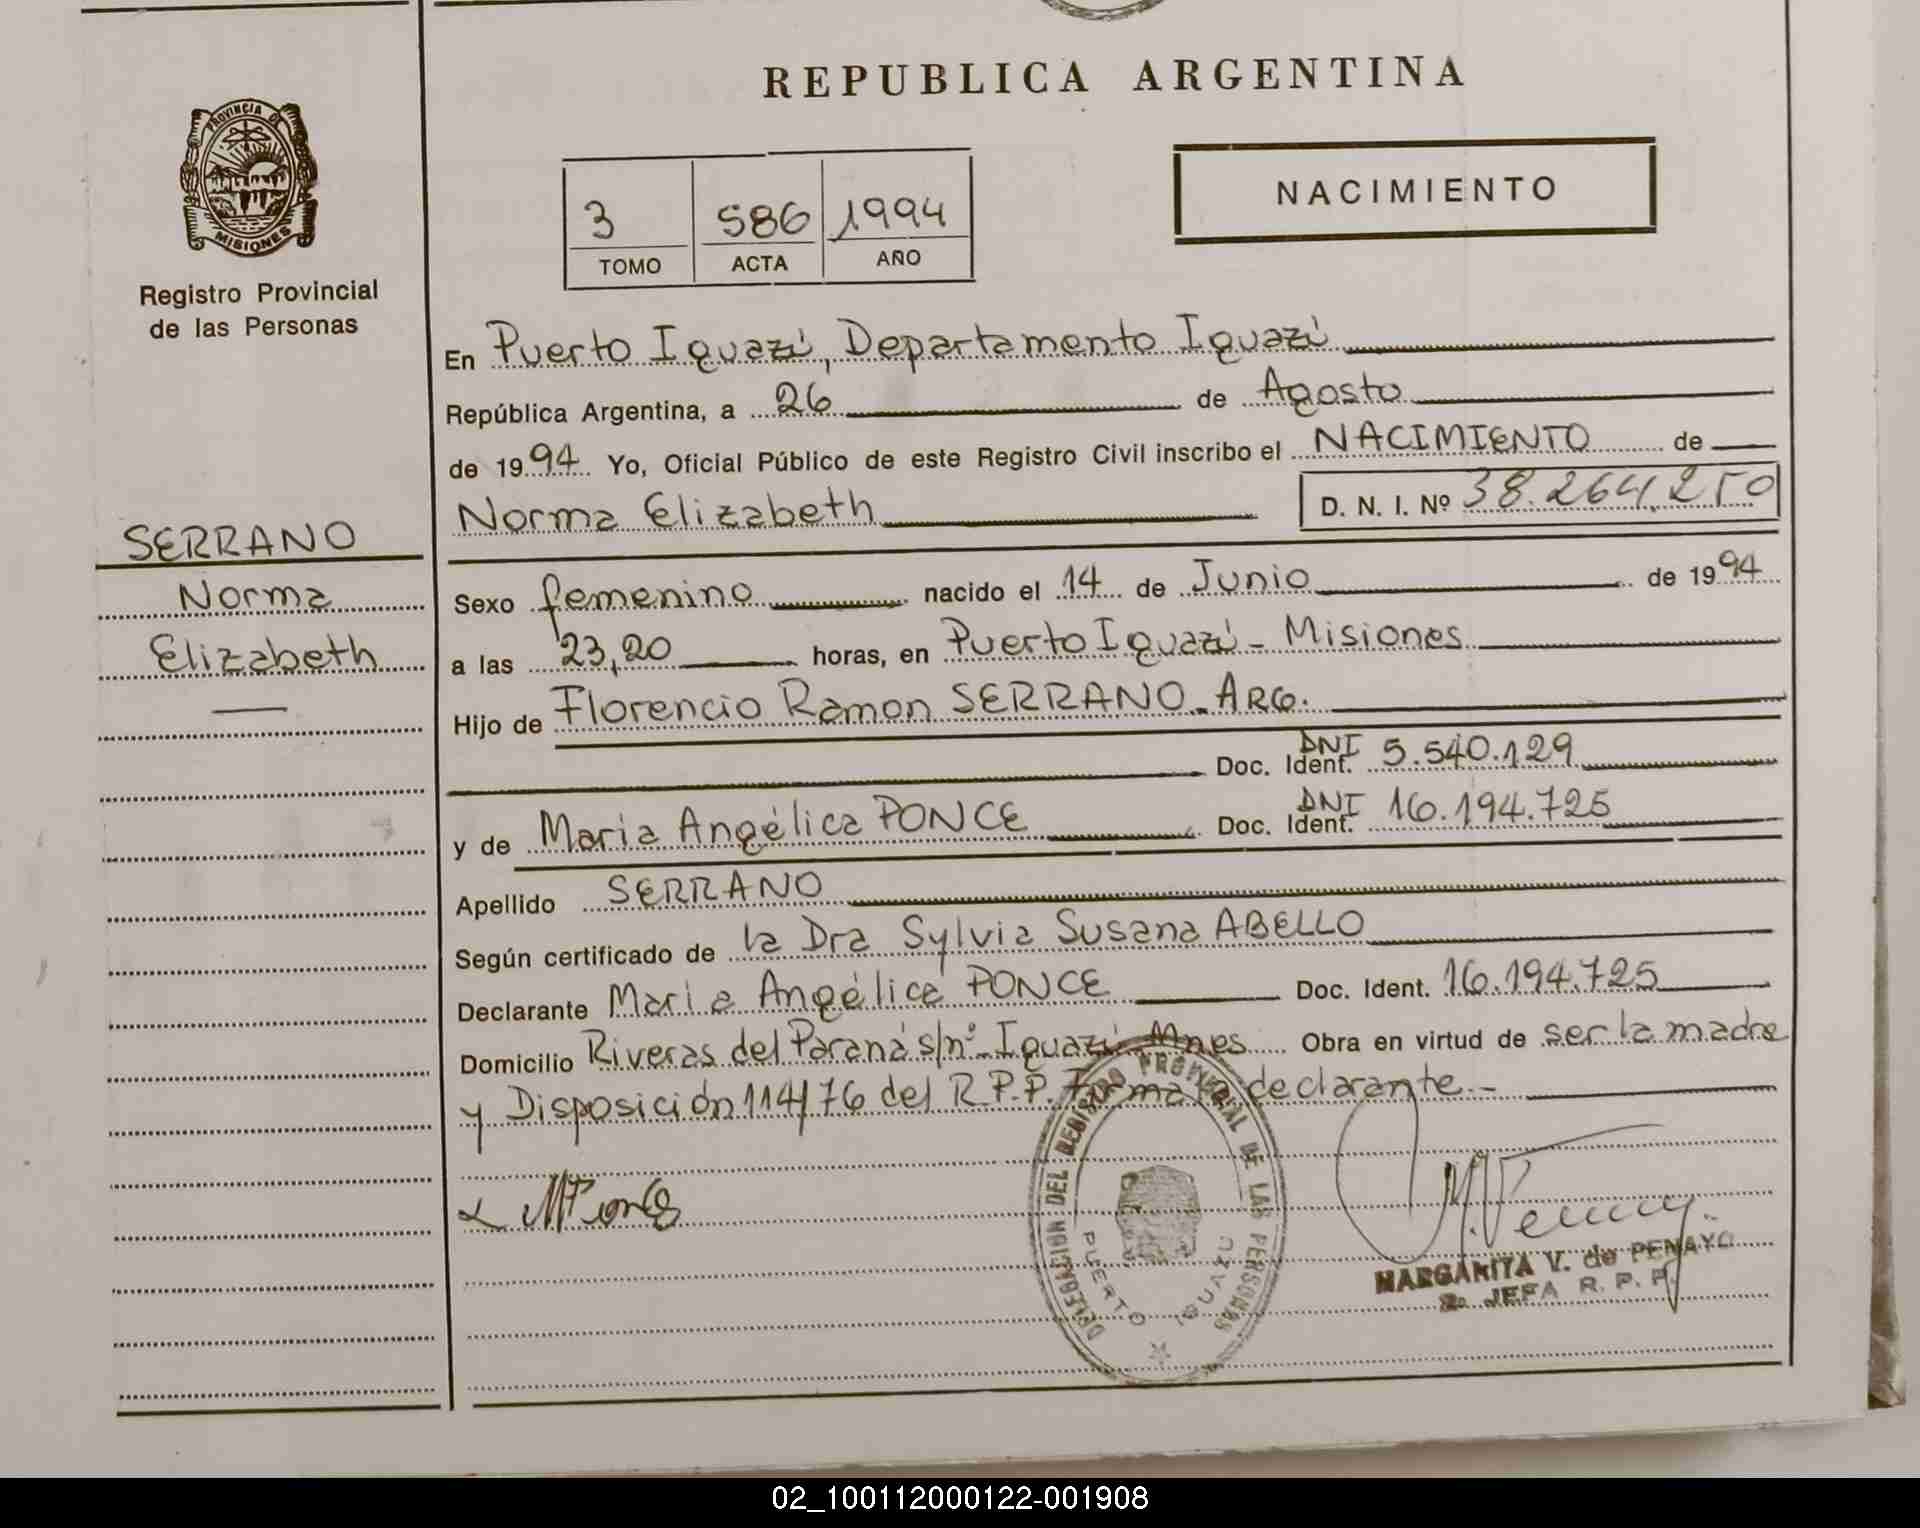 REPUBLICA ARGENTINA
PROVINCIA DE
MISIONES
Registro Provincial
de las Personas
3 586 1994
TOMO ACTA AÑO
NACIMIENTO
SERRANO
Norma
Elizabeth
En Puerto Iguazú, Departamento Iguazú
República Argentina, a 26 de Agosto
de 1994 Yo, Oficial Público de este Registro Civil inscribo el NACIMIENTO de
Norma Elizabeth D. N. I. Nº 38.264.250
Sexo femenino nacido el 14 de Junio de 1994
a las 23,20 horas, en Puerto Iguazú - Misiones
Hijo de Florencio Ramon SERRANO - ARG.
Doc. Ident. DNI 5.540.129
y de Maria Angélica PONCE Doc. Ident. DNI 16.194.725
Apellido SERRANO
Según certificado de la Dra Sylvia Susana ABELLO
Declarante Maria Angélica PONCE Doc. Ident. 16.194.725
Domicilio Riveras del Paraná s/nº - Iguazú - Mnes Obra en virtud de ser la madre
y Disposición 114/76 del R.P.P. Firma la declarante.-
DELEGACION DEL REGISTRO PROVINCIAL DE LAS PERSONAS
PUERTO IGUAZU
MPonce
MARGARITA V. de PENAYO
JEFA R. P. P.
02_100112000122-001908